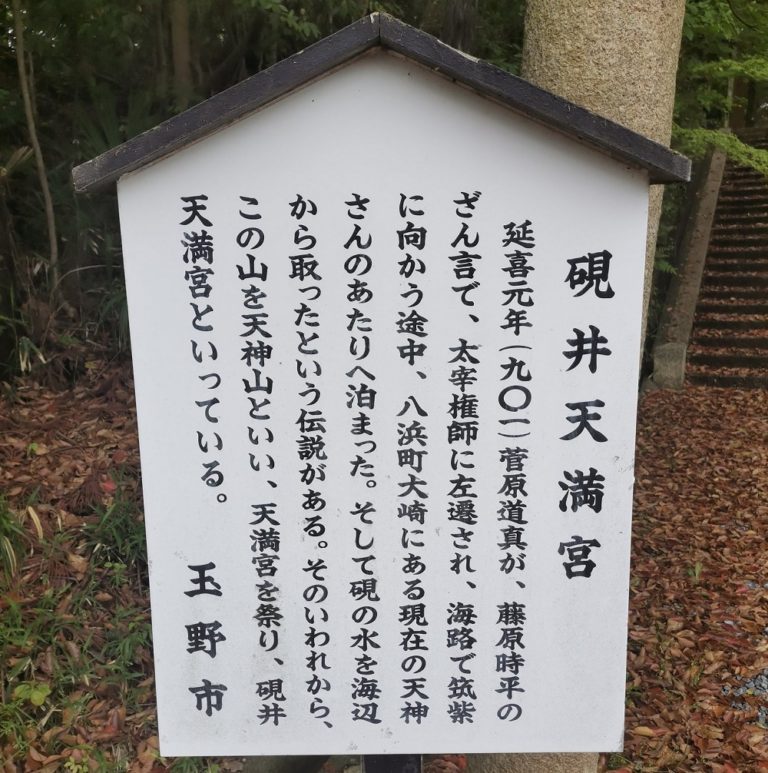 硯井天満宮
延喜元年(九〇一)菅原道真が、藤原時平の
ざん言で、太宰権師に左遷され、海路で筑紫
に向かう途中、八浜町大崎にある現在の天神
さんのあたりへ泊まった。そして硯の水を海辺
から取ったという伝説がある。そのいわれから、
この山を天神山といい、天満宮を祭り、硯井
天満宮といっている。
玉野市